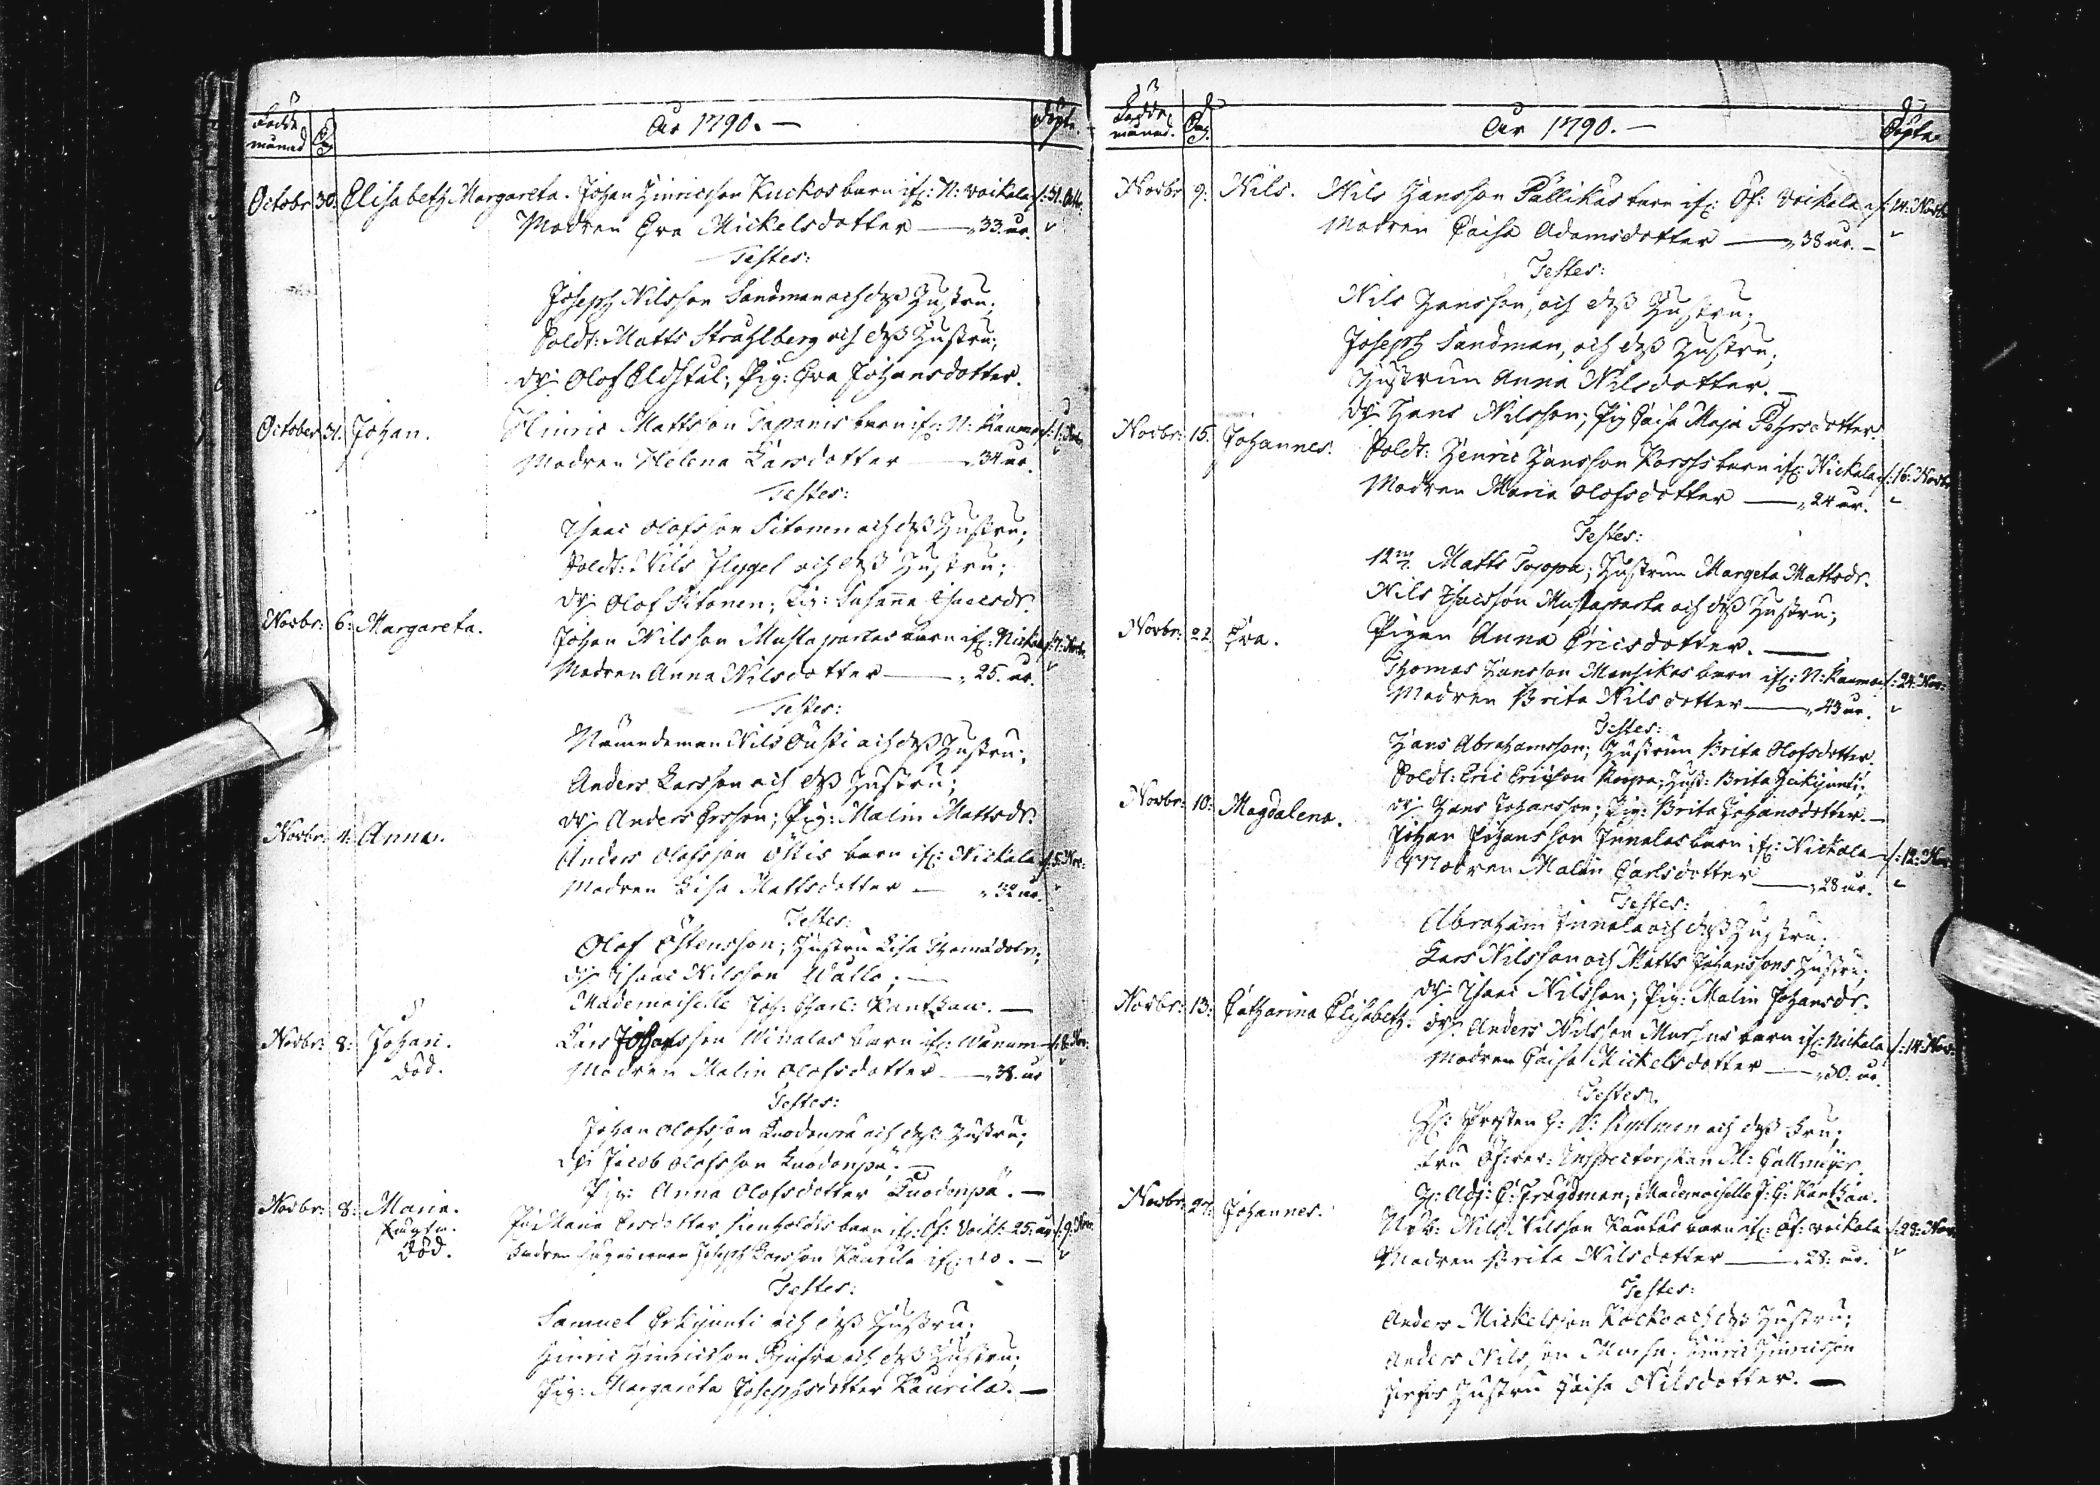 Födde månad
Dag
År 1790. —
Döpte.
Octobr 30. Elisabeth Margareta. Johan Hinricsson Kuckos barn ifr: N: Voikala d: 31. Octb.
Modren Eva Mickelsdotter — „ 33. år.
Testes:
Joseph Nilsson Sandman och dess Hustru;
Soldt: Matts Stråhlberg och dess Hustru;
dr: Olof Eldstål; Pig: Eva Johansdotter.
October 31. Johan. Hinric Mattsson Tapanis barn ifr: N: Raumo d: 1: Novbr
Modren Helena Larsdotter — „ 34 år.
Testes:
Isaac Olofsson Sitonen och dess Hustru;
Soldt: Nils Flygel och dess Hustru;
dr: Olof Sitonen; Pig: Susanna Isacsdr.
Novbr: 6: Margareta. Johan Nilsson Mustaparbas barn ifr: Nickala d: 7: Novbr.
Modren Anna Nilsdotter — „ 25. år.
Testes:
Nämndeman Nils Ousti och dess Hustru;
Anders Larsson och dess Hustru;
dr: Anders Ersson; Pig: Malin Mattsdr.
Novbr: 4: Anna. Anders Olofsson Ollis barn ifr: Nickala d: 5: Nov:
Modren Lisa Mattsdotter — „ 32 år.
Testes:
Olof Östensson; Hustru Lisa Thomædotr;
dr: Isaac Nilsson Walla; —
Mademoiselle Joh: Charl: Kantzau. —
Novbr: 8: Johan. Lars Johansson Winalas barn ifr: Wånom d: 8: Nov:
död. Modren Malin Olofsdotter — „ 38. år
Testes:
Johan Olofsson Kuodonpä och dess Hustru;
dr: Jacob Olofsson Kuodonpä. —
Pig: Anna Olofsdotter Kuodonpä. —
Novbr: 8: Maria. Pig Maria Ersdotter barn ifr: Öf: Voik: 25: år d: 9: Nov:
död. Fadren Joseph Larsson Kaurila ifr: do. —
Testes:
Samuel Erkijunti och dess Hustru;
Hinric Hinricsson och dess Hustru;
Pig: Margareta Josephsdotter Kaurila. —
Födde månad.
Dag.
År 1790. —
Döpte.
Novbr 9: Nils. Nils Hansson Pallikas barn ifr: Öf: Voikala d: 14: Novbr
Modren Caisa Adamsdotter — „ 38 år. —
Testes:
Nils Hansson, och dess Hustru;
Joseph Sandman, och dess Hustru;
Hustrun Anna Nilsdotter. —
dr: Hans Nilsson; Pig Caisa Maja Pehrsdotter.
Novbr: 15. Johannes. Soldt: Henric Hansson Korsss barn ifr: Nickala d: 16: Novbr
Modren Maria Olofsdotter — „ 24 år.
Testes:
12m. Matts Poropa; Hustrun Margeta Mattsdr.
Nils Isacsson Mustaparta och dess Hustru;
Pigan Anna Ericsdotter. —
Novbr: 22 Eva. Thomas Hansson Mansikas barn ifr: N: Raumo d: 24: Nov:
Modren Brita Nilsdotter — „ 43 år.
Testes:
Hans Abrahamsson; Hustrun Brita Olofsdotter
Soldt: Eric Ericsson Korpa; Hust: Brita Heikijunti;
dr: Hans Johansson; Pig: Brita Johansdotter. —
Novbr: 10: Magdalena. Johan Johansson Innalas barn ifr: Nickala d: 12: Nov:
Modren Malin Carlsdotter — „ 28 år.
Testes:
Abraham Innala och dess Hustru;
Lars Nilsson och Matts Johanssons Hustru;
dr: Isaac Nilsson; Pig: Malin Johansdr.
Novbr: 13: Catharina Elisabeth. dr: Anders Nilsson barn ifr: Nickala d: 14: Nov:
Modren Caisa Mickelsdotter — „ 30: år.
Testes.
Prosten och dess Fru;
Fru Inspectorskan M: Calmeijer.
H: Adj: E: Frugdman; Mademoiselle J: C: Kantzau.
Novbr: 27: Johannes. Nyb: Nils Nilsson Kantas barn ifr: Öf: Voikala d: 28: Nov:
Modren Brita Nilsdotter — „ 28: år.
Testes:
Anders Mickelsson Kocko och dess Hustru;
Anders Nilsson; Hinric Hinricsson
Hustru Caisa Nilsdotter. —